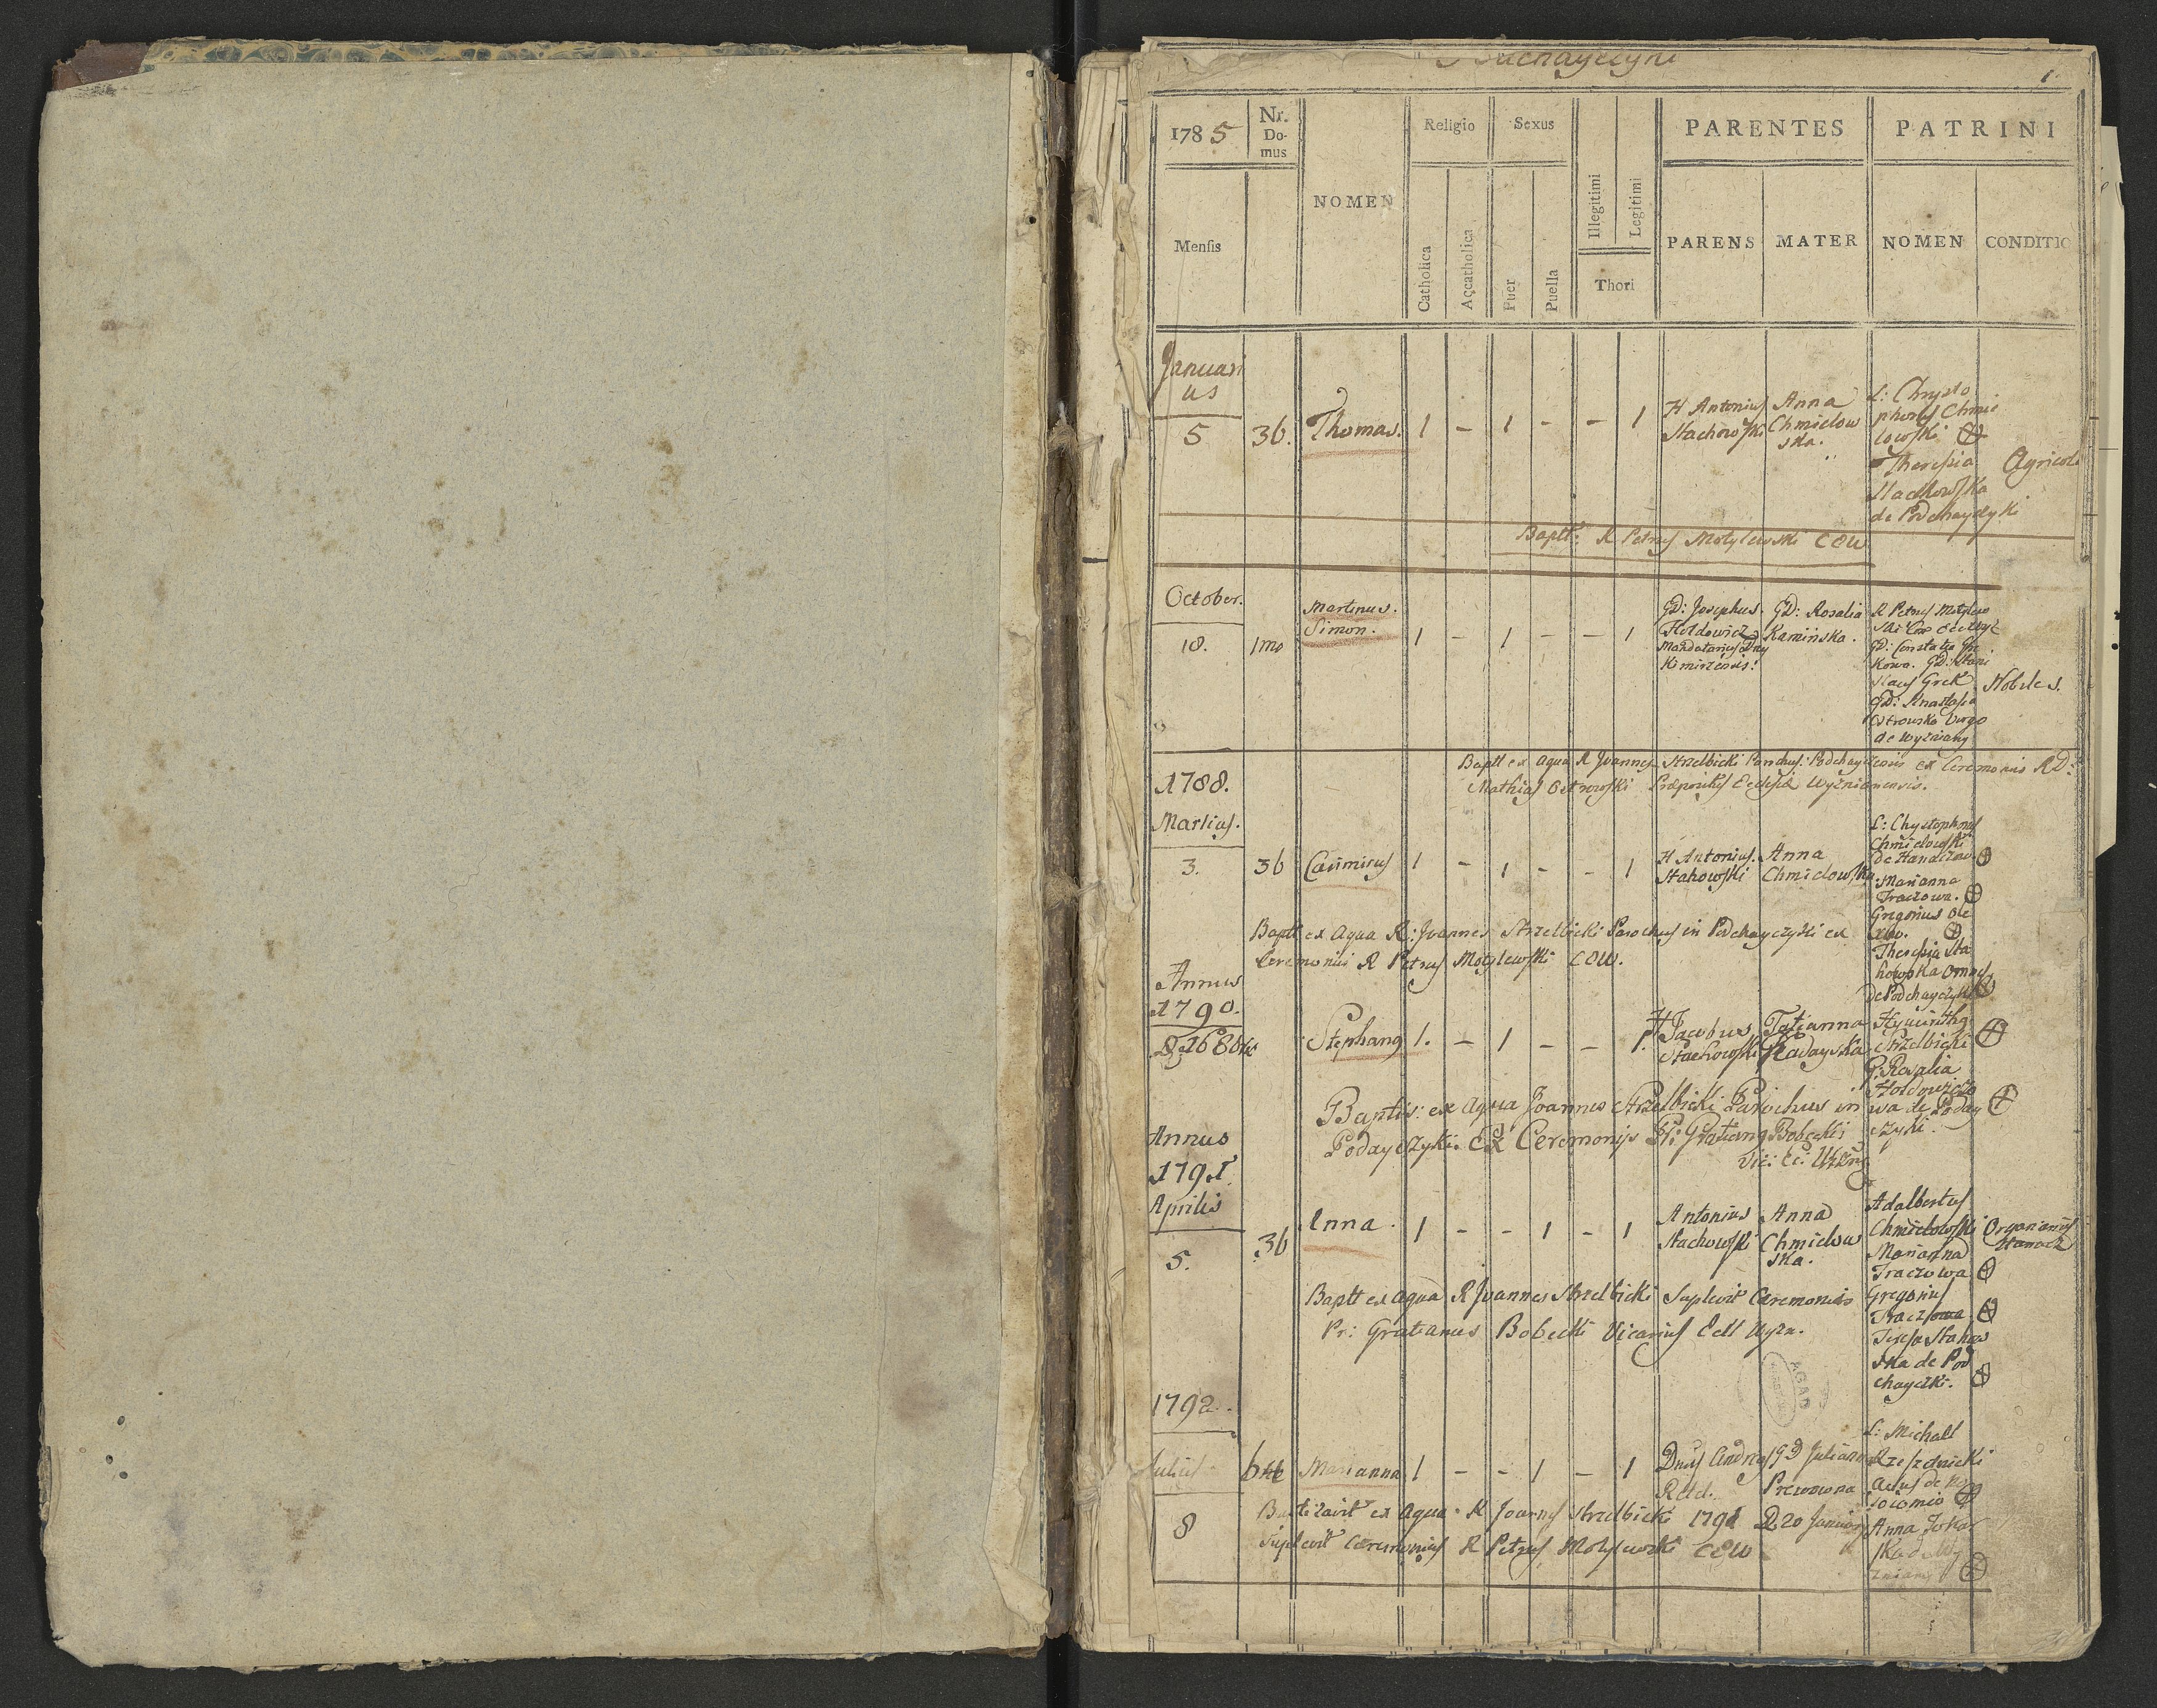 1
178 5
Nr.
Do-
mus
NOMEN
Religio
Sexus
Illegitimi
Legitimi
Thori
PARENTES
PATRINI
Mensis
Catholica
Accatholica
Puer
Puella
PARENS
MATER
NOMEN
CONDITIO
Januari
us
5
36.
Thomas.
1 - 1 - - 1
H Antonius
Stachowski
Anna
Chmielow
ska.
L: Chrysto
phorus Chmie
lowski
Theresia
Stachowska
de Podchayczyki
Agricolæ
Baptt: R Petrus Motylewski CEW
October.
18.
1mo
Martinus.
Simon.
1 - 1 - - 1
GD: Josephus
Hołdowicz
Mandatarius
GD: Rosalia
Kamińska.
R Petrus Motylew
ski
GD:
kowa. GD: Stani
slaus Grek
GD: Anastasia
Ostrowska Virgo
de Wyżniany
Nobiles.
Baptt ex aqua R Joannes Strzelbicki Parochus Podchaycensis ex Ceremoniis RD:
Mathias Ostrowski Præpositus Ecclesiæ Wyżnianensis.
1788.
Martius.
3.
36
Casimirus
1 - 1 - - 1
H Antonius.
Stahowski
Anna
Chmielowska
L: Chystophorus
Chmielowski
de Hanaczow.
Marianna
Traczowa.
Gregorius Ole
xow.
Theresia Sta
howska omnes
de Podchayczyki
Baptt ex Aqua R: Joannes Strzelbicki Parochus in Podchayczyki ex
Ceremoniis R Petrus Motylewski CEW.
Annus
1790.
D 16 8bris
Stephanus
1. - 1 - - 1.
H Jacobus
Stachowski
Tatianna
Radayska
Hyacinthus
Strzelbicki
G: Rosalia
Hołdowiczo
wa de Poday
czyki
Baptis: ex aqua Joannes Strzelbicki Parochus in
Podayczyki. Ex Ceremonijs P: Gratianus Bobecki
Vic: Ec: Wyżn:
Annus
1791.
Aprilis
5.
36
Anna.
1 - - 1 - 1
Antonius
Stachowski
Anna
Chmielow
ska.
Adalbertus
Chmielowski
Marianna
Traczowa
Gregorius
Traczowa
Teresa Stahow
ska de Pod
chayczki.
Organarius
Hanacz
Baptt ex aqua R Joannes Strzelbicki Suplevit Ceremonias
Pr: Gratianus Bobecki Vicarius Eccl Wyzn.
AGAD
1792.
Julius
8
Marianna
1 - - 1 - 1
Dnus Andreas
GD Julianna
L: Michael
Rzeszdnicki
Baptizavit ex aqua R Joannes Strzelbicki 1791 D 20 Januarij
Suplevit Ceremonias R Petrus Motylewski CEW
Anna